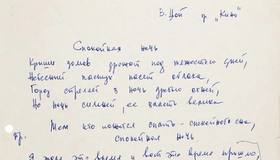 В. Цой гр. „Кино"
Спокойная ночь
Крыши домов дрожат под тяжестью дней,
Небесный пастух пасёт облака,
Город стреляет в ночь дробью огней,
Но ночь сильней, её власть велика
Тем кто ложится спать – спокойного сна,
пр.
спокойная ночь
Я ждал это время и вот это время пришло